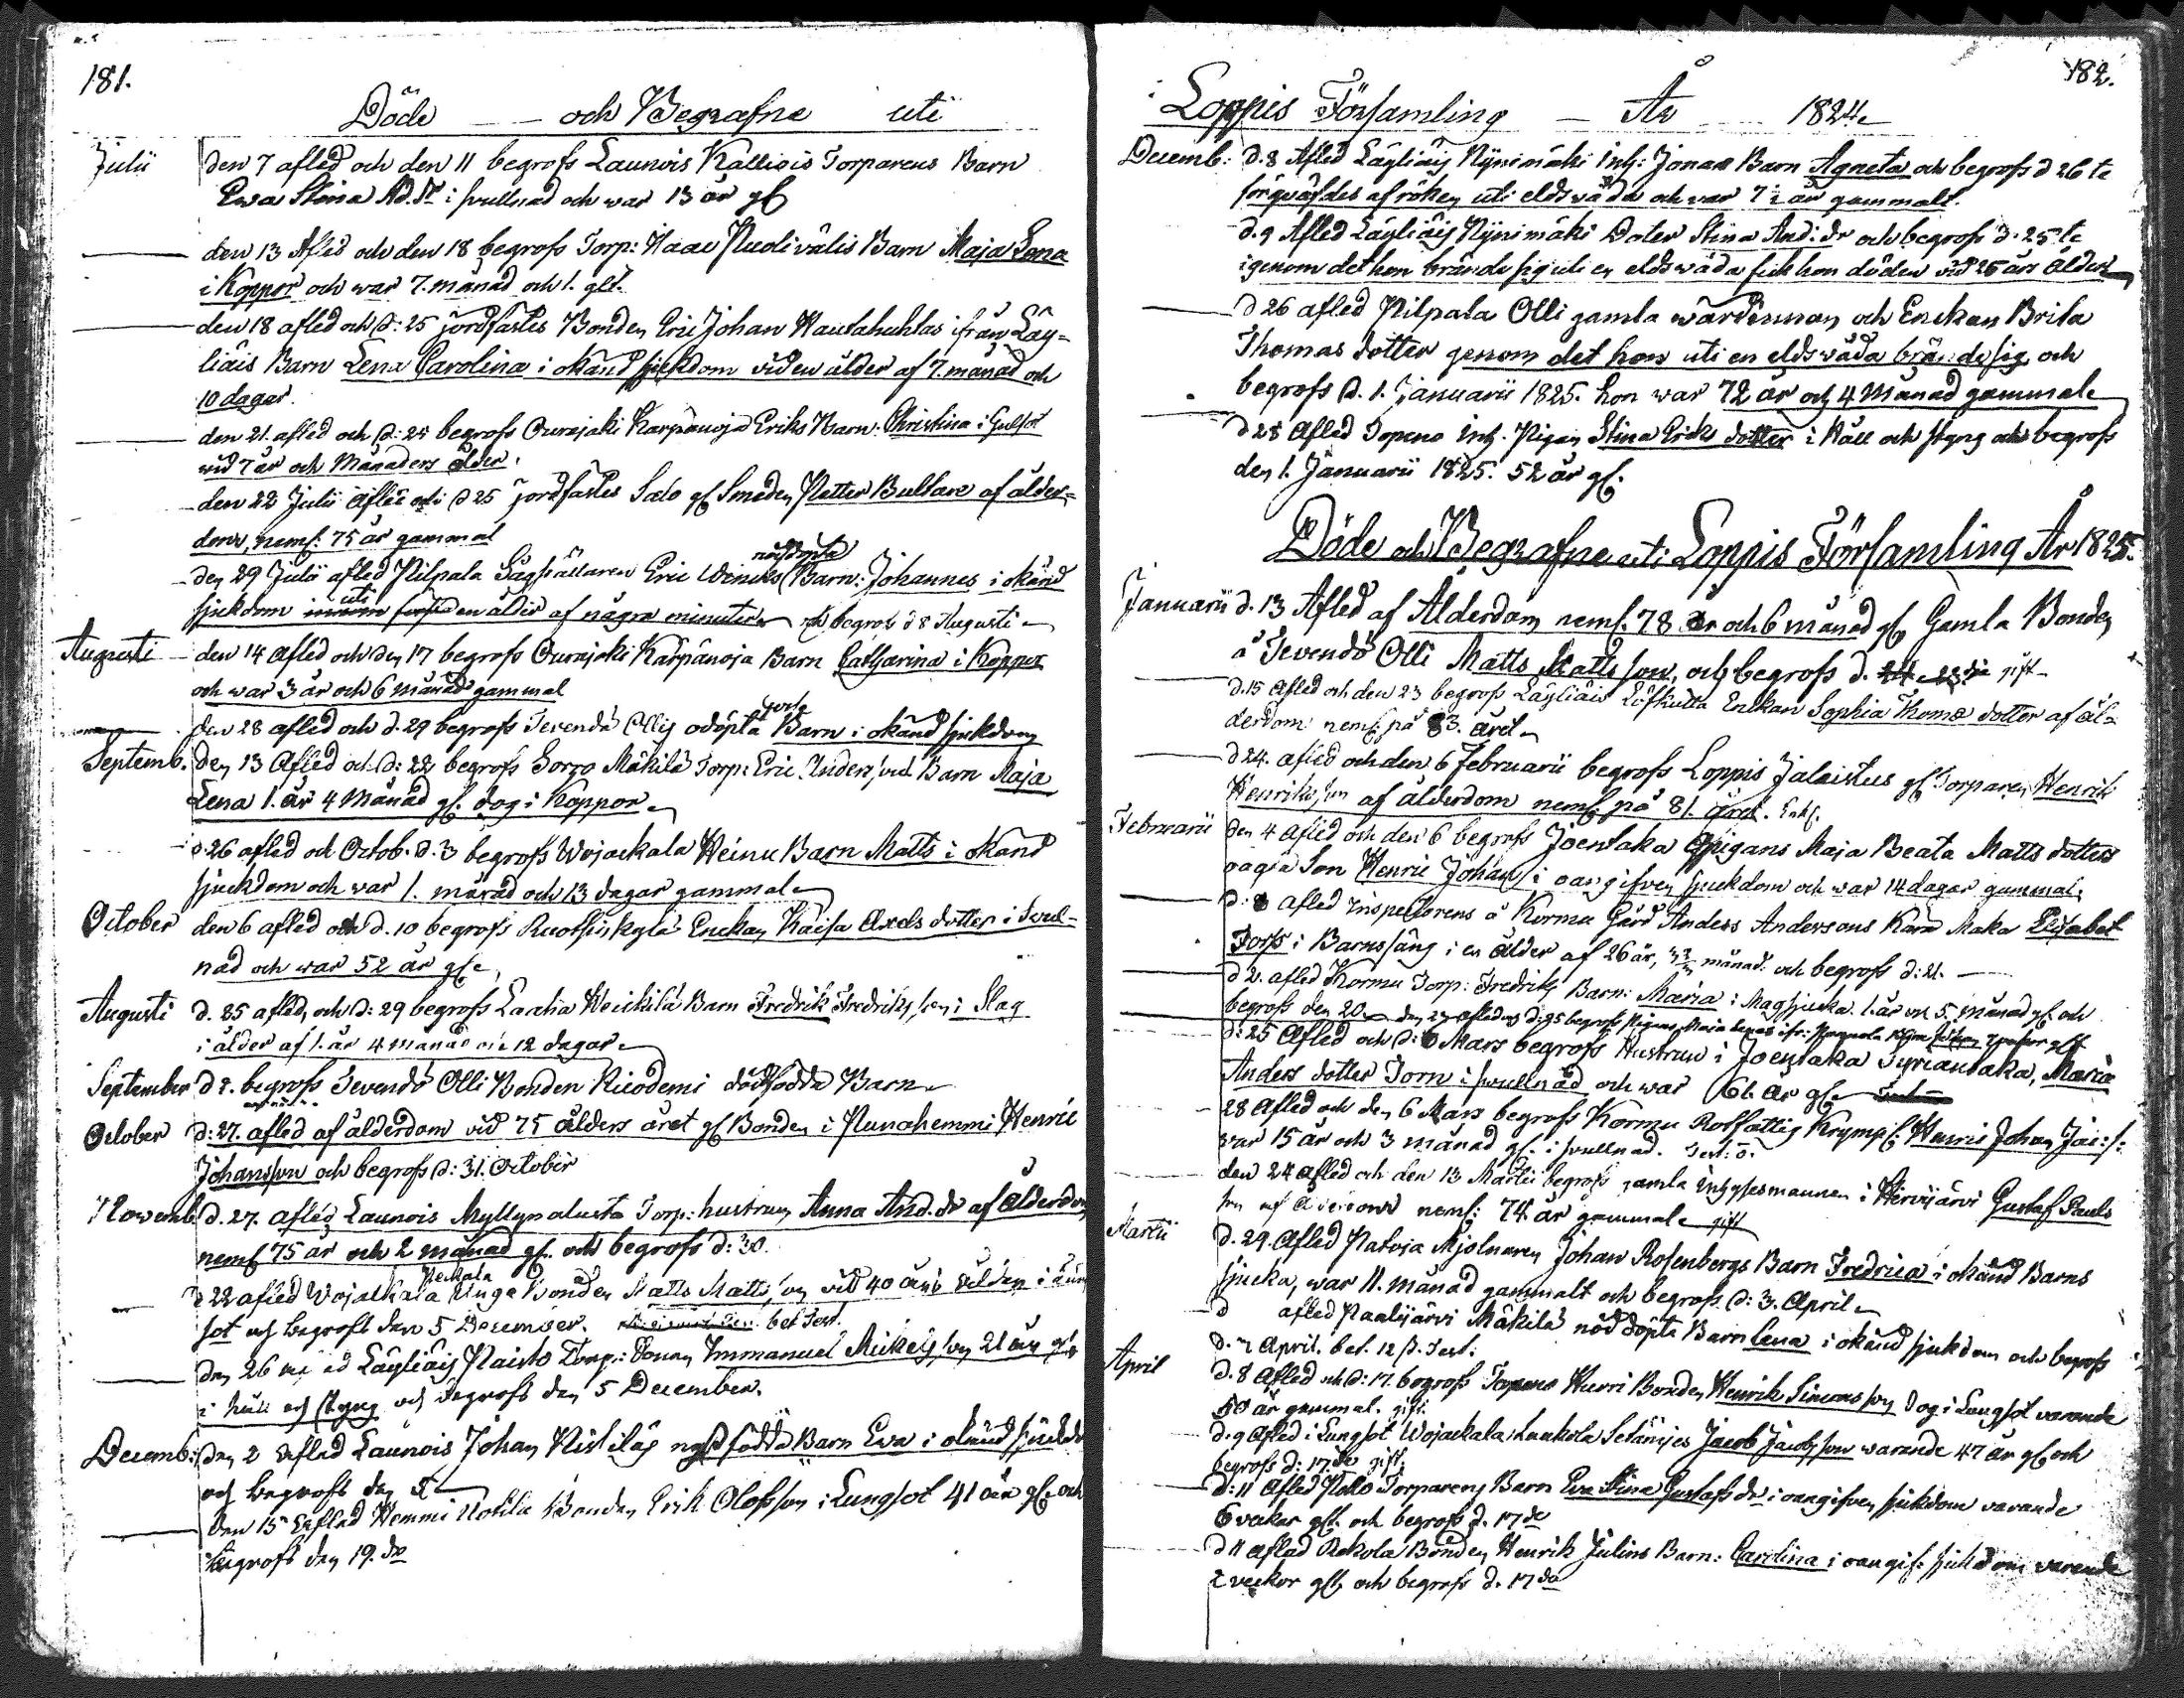 181.
Döde och Begrafne uti
Julii den 7 afled och den 11 begrofs Launois Kalliois Torparens Barn
Ewa Stina Ad. Dr i svullnad och war 13 år gl
den 13 Afled och den 18 begrofs Torp: Barn Maja Lena
i Koppor och war 7. månad och 1. gl.
den 18 afled och d: 25 jordfästes Bonden Eric Johan Hautahuhtas ifrån Läy=
liäis Barn Lena Carolina i okänd sjukdom vid en ålder af 7. månad och
10 dagar.
den 21. afled och d: 25 begrofs Ourajoki Karpanoja Eriks Barn: Christina i Gulsot
wid 7 år och Månaders ålder.
den 22 Julii afled och d 25 jordfästes Salo gl Smeden Petter Bultare af ålder=
dom, neml: 75 år gammal
nöddöpta
den 29 Julii afled Pilpala Sågställaren Eric Barn: Johannes i okänd
sjukdom uti en ålder af några minuter och begrofs d 8 Augusti
Augusti den 14 afled och den 17 begrofs Ourajoki Karpanoja Barn Catharina i Koppor
och war 3 år och 6 månad gammal
den 28 afled och d. 29 begrofs Tevendö Ollis odöpta Barn i okänd sjukdom
Septemb. den 13 Afled och d: 22 begrofs Sorro Mäkilä Torp: Eric Barn Maja
Lena 1. år 4 Månad gl. dog i Koppor
d 26 afled och Octob. d. 3 begrofs Wojackala Heinu Barn Matts i okänd
sjuckdom och war 1. månad och 13 dagar gammal
October den 6 afled och d. 10 begrofs Ruotsinkylä Enckan Kaisa Axels dotter i Svul-
nad och war 52 år gl
Augusti d. 25 afled, och d: 29 begrofs Laaka Heickilä Barn Fredrik Fredriks son i Slag
i ålder af 1. år 4 månad och 12 dagar
September d 2. begrofs Tevendö Olli Bonden Nicodemi dödfödda Barn
October d: 27. afled af ålderdom vid 75 ålders året gl Bonden i Punahemmi Henric
Johansson och begrofs d: 31. October
Novemb. d. 27. afled Launois Myllynalusta Torp: hustrun Anna And. dr af Ålderdom
neml 75 år och 2 månad gl. och begrofs d: 30.
Peckala
d 22 afled Wojackala Unga Bonden Matts Matts son vid 40 års ålder i Lung
sot och begrofs den 5 December. bet Test.
den 26 afled Läyliäis Paisto Torp: Sonen Immanuel Mickels son 21 år gl
i håll och styng och begrofs den 5 December.
Decemb: den 2 Afled Launois Johan Nikkiläs nyss födda Barn Eva i okänd sjukdom
och begrofs den 5
den 15 Afled Hemmi Uotila Bonden Erik Olofsson i Lungsot 41 år gl och
begrofs den 19. de
182.
Loppis Församling År 1824
Decemb: d. 8 Afled Läyliäis Nynimäki Inh: Jonas Barn Agneta och begrofs d 26 te
förqväfdes af röken uti eldsvåda och var 7 ½ år gammalt.
d. 9 Afled Läyliäis Nynimäki Doter Stina And: dr och begrofs d. 25 te
igenom det hon brände sig uti en eldswåda fick hon döden vid 25 års ålder
d 26 afled Pilpala Olli gamla wärdinnan och Enckan Brita
Thomas dotter genom det hon uti en eldsvåda brände sig och
begrofs d. 1. Januarii 1825. hon war 72 år och 4 Månad gammal
d 28 Afled Topeno Inh. Pigan Stina Eriks dotter i Håll och styng och begrofs
den 1. Januarii 1825. 52 år gl.
Döde och Begrafne uti Loppis Församling År 1825.
Januarii d. 13 Afled af Ålderdom neml. 78 år och 6 månad gl Gamla Bonden
å Tevendö Olli Matts Matts son, och begrofs d. 23 die gift
d. 15 Afled och den 23 begrofs Läyliäis Löfkulta Enckan Sophia Thomæ dotter af ål=
derdom neml. på 83. året
d 24. afled och den 6 Februarii begrofs Loppis Jalaistus gl Torparen Henrik
Henriks son af ålderdom neml. på 81. året. Enkl.
Februarii den 4 afled och den 6 begrofs Joentaka Pigans Maja Beata Matts dotters
oägta Son Henric Johan i oangifven sjuckdom och war 14 dagar gammal
d: 8 afled Inspectorens å Kormu Gård Anders Anderssons Kära Maka Elisabet
Torss i Barnssäng i en ålder af 26 år, månad och begrofs d: 21.
d 2. afled Kormu Torp: Fredriks Barn: Maria i Magsjuka 1. år och 5. månad gl. och
begrofs den 20.
d: 25 Afled och d: 6 Mars begrofs Hustrun i Joentaka Syrjäntaka, Maria
Anders dotter Torn i svullnad och war 61. år gl
28 Afled och den 6 Mars begrofs Kormu Rotfattig Krympl: Henric Johan Jac: s:
var 15 år och 3 månad gl. i svullnad.
den 24 afled och den 13 Martii begrofs gamla Inhysesmannen i Hirvijärvi Gustaf Pauls
son af Ålderdom neml: 74 år gammal gift
Martii d. 29. Afled Patoja Mjölnaren Johan Rosenbergs Barn Fredrica i okänd Barns
sjucka, war 11. månad gammalt och begrofs d: 3. April
d afled Paalijärvi Mäkilä nöddöpta Barn Lena i okänd sjukdom och begrofs
d. 2 April. bet. 12 d. Test.
April d. 8 Afled och d: 17. begrofs Topeno Hurri Bonden Henrik Simonsson dog i Lungsot varande
50 år gammal. gift
d. 9 Afled i Lungsot Wojackala Laakola Jacob Jacobsson warande 47 år gl och
begrofs d: 17 de gift.
d: 11 Afled Torparens Barn Eva Stina Gustafs dr i oangifven sjukdom varande
6 veckor gl. och begrofs d. 17 de
d 11 aflad Rekola Bonden Henrik Julins Barn: Carolina i oangif: sjukdom varende
2 veckor gl och begrofs d. 17 de